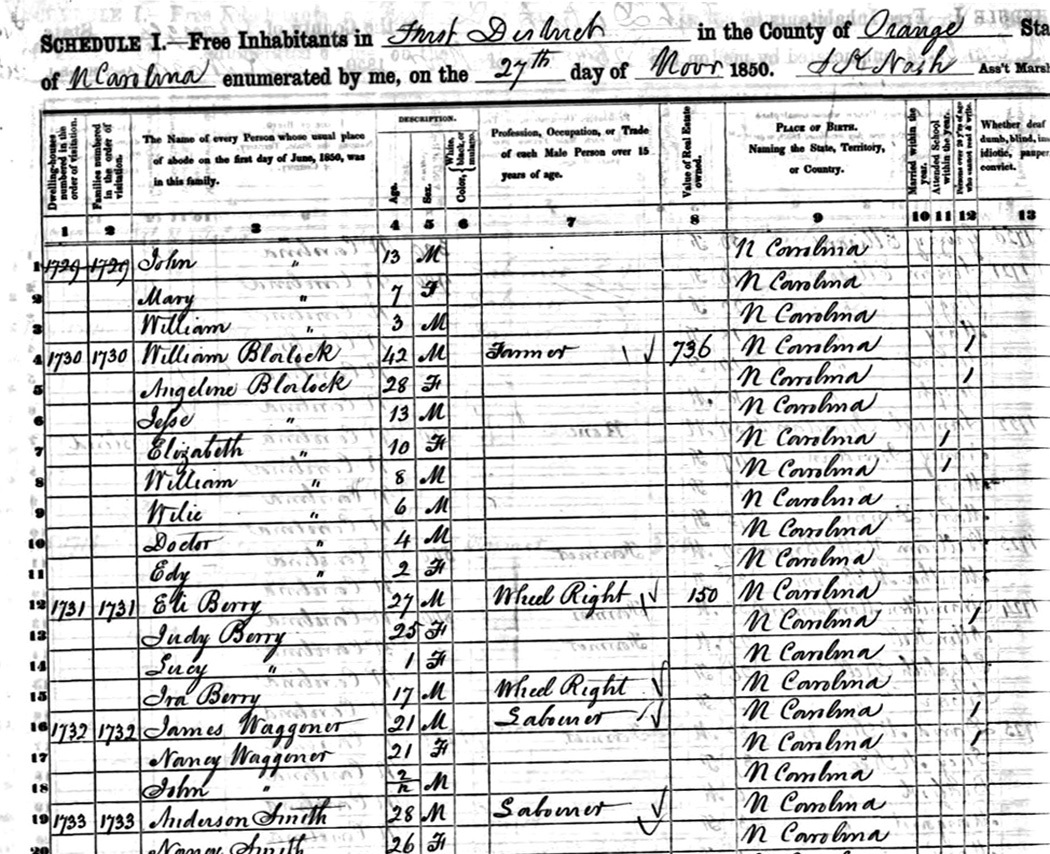 SCHEDULE I.—Free Inhabitants in First District in the County of Orange Sta
of N Carolina enumerated by me, on the 27th day of Novr 1850. Nash Ass't Marsh
Dwelling-houses numbered in the order of visitation.
Families numbered in the order of visitation.
The Name of every Person whose usual place of abode on the first day of June, 1850, was in this family.
DESCRIPTION.
Age.
Sex.
Color, White, black, or mulatto.
Profession, Occupation, or Trade of each Male Person over 15 years of age.
Value of Real Estate owned.
PLACE OF BIRTH. Naming the State, Territory, or Country.
Married within the year.
Attended School within the year.
Persons over 20 y'rs of age who cannot read & write.
Whether deaf dumb, blind, ins idiotic, pauper convict.
1 2 3 4 5 6 7 8 9 10 11 12 13
1 1729 1729 John " 13 M N Carolina
2 Mary " 7 F N Carolina
3 William " 3 M N Carolina
4 1730 1730 William Blorlock 42 M Farmer 736 N Carolina 1
5 Angelene Blorlock 28 F N Carolina 1
6 Jesse " 13 M N Carolina
7 Elizabeth " 10 F N Carolina 1
8 William " 8 M N Carolina 1
9 Wilie " 6 M N Carolina
10 Doctor " 4 M N Carolina
11 Edy " 2 F N Carolina
12 1731 1731 Eli Berry 27 M Wheel Right 150 N Carolina
13 Judy Berry 25 F N Carolina 1
14 Lucy " 1 F N Carolina
15 Ira Berry 17 M Wheel Right N Carolina
16 1732 1732 James Waggoner 21 M Labourer N Carolina 1
17 Nancy Waggoner 21 F N Carolina 1
18 John " M N Carolina
19 1733 1733 Anderson Smith 28 M Labourer N Carolina
20 Nancy Smith 26 F N Carolina